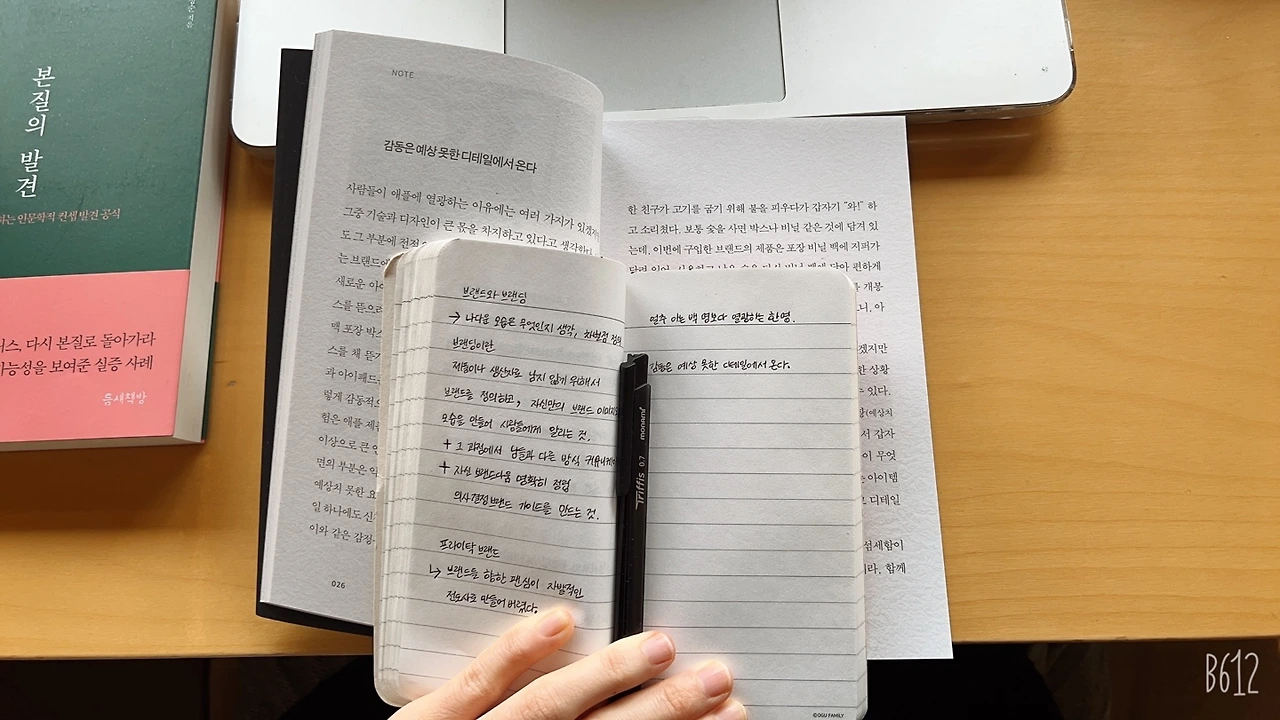 본질의 발견
하는 인문학적 컨셉 발견 공식
다시 본질로 돌아가라
가능성을 보여준 실증 사례
틈새책방
NOTE
감동은 예상 못한 디테일에서 온다
사람들이 애플에 열광하는 이유에는 여러 가지가 있겠지
그중 기술과 디자인이 큰 몫을 차지하고 있다고 생각한다.
도 그 부분에 전적
는 브랜드
새로운 아
스를 뜯으
맥 포장 박
스를 채 뜯기
과 아이패드
렇게 감동적
험은 애플 제
이상으로 큰
면의 부분은
예상치 못한 요
일 하나에도 신
이와 같은 감정
026
한 친구가 고기를 굽기 위해 불을 피우다가 갑자기 “와!” 하
고 소리쳤다. 보통 숯을 사면 박스나 비닐 같은 것에 담겨 있
는데, 이번에 구입한 브랜드의 제품은 포장 비닐 백에 지퍼가
달려 있어, 사용하고 남은 숯을 다시 비닐 백에 담아 편하게
개봉
니, 아
겠지만
한 상황
수 있다.
함(예상치
서 갑자
이 무엇
는 아이템
디테일
섬세함이
라, 함께
브랜드와 브랜딩
→ 나다운 모습은 무엇인지 생각, 차별점 정의
브랜딩이란
제품이나 생산자로 남지 않기 위해서
브랜드를 정의하고, 자신만의 브랜드 이미지와
모습을 만들어 사람들에게 알리는 것.
+ 그 과정에서 남들과 다른 방식 커뮤니케이
+ 자신 브랜드다움 명확히 정립
의사결정 브랜드 가이드를 만드는 것.
프라이탁 브랜드
↳ 브랜드를 향한 팬심이 자발적인
전도사로 만들어 버렸다.
열추 이는 백 명보다 열광하는 한 명.
감동은 예상 못한 디테일에서 온다.
monami Triffis 0.7
©OGU FAMILY
B612